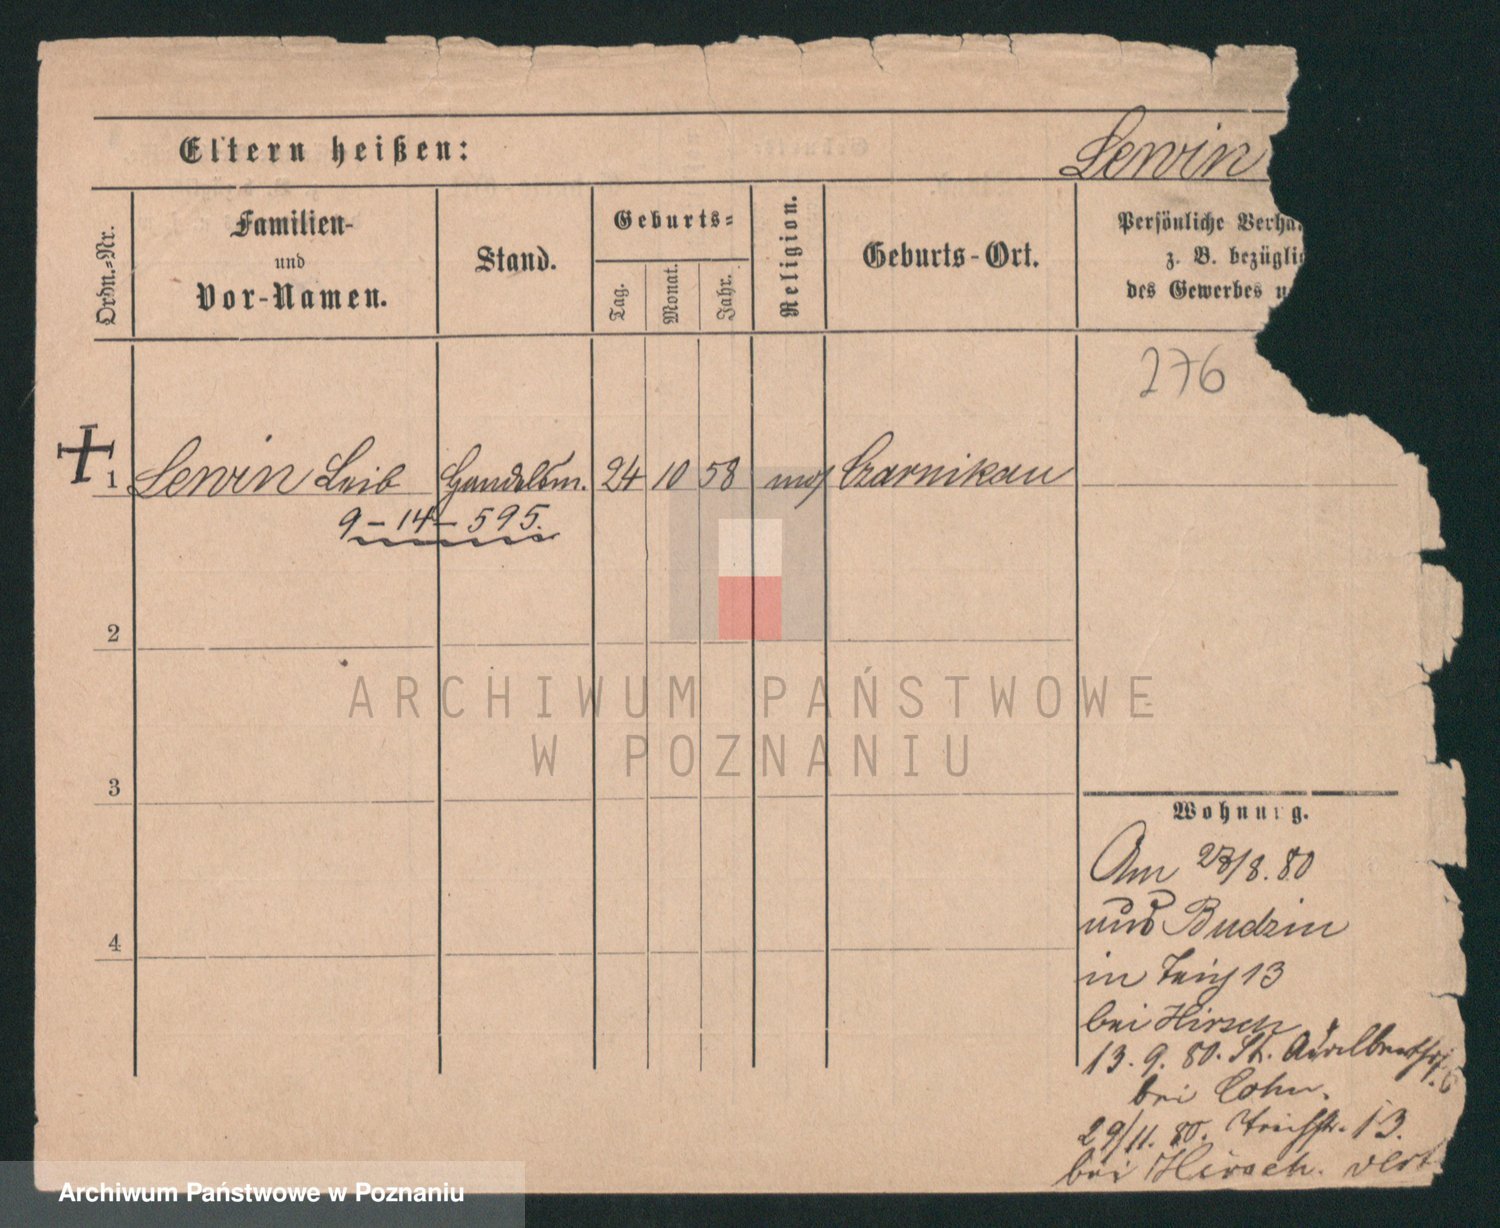 Eltern heißen:
Lewin
Ordn.-Nr.
Familien-
und
Vor-Namen.
Stand.
Geburts-
Tag.
Monat.
Jahr.
Religion.
Geburts-Ort.
Persönliche Verha
z. B. bezüglic
des Gewerbes u
276
1 Lewin Leib Handelsm. 24 10 58 mos Czarnikau
9-14-595.
2
3
4
Wohnung.
Am 28/8. 80
aus Budzin
in 13
bei Hirsch
13. 9. 80. St. 6
bei Cohn.
29/11. 80. 13.
bei Hirsch.
ARCHIWUM PAŃSTWOWE
W POZNANIU
Archiwum Państwowe w Poznaniu